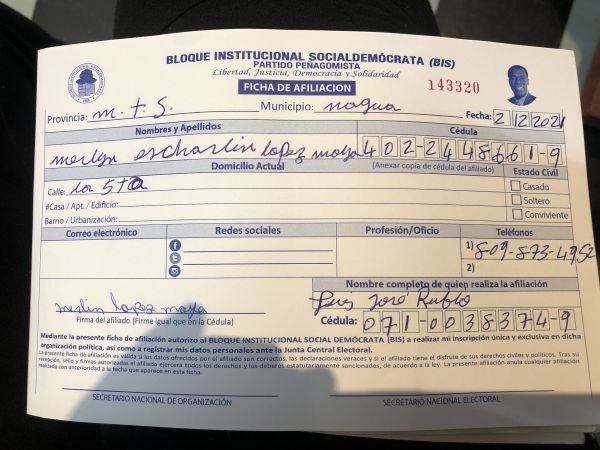 BLOQUE INSTITUCIONAL SOCIALDEMÓCRATA (BIS)
PARTIDO PEÑAGOMISTA
Libertad, Justicia, Democracia y Solidaridad
FICHA DE AFILIACION
143320
Provincia: m.t.S. Municipio: nagua Fecha: 2/12/2021
Nombres y Apellidos Cédula
merlyn escharlin lopez moya 402-2448661-9
Domicilio Actual (Anexar copia de cédula del afiliado) Estado Civil
Calle: los 5ta Casado
#Casa / Apt. / Edificio: Soltero
Barrio / Urbanización: Conviviente
Correo electrónico Redes sociales Profesión/Oficio Teléfonos
1) 809-873-4952
2)
Nombre completo de quien realiza la afiliación
merlin lopez moya José Rubio
Firma del afiliado (Firme igual que en la Cédula) Cédula: 071-0038374-9
Mediante la presente ficha de afiliación autorizo al BLOQUE INSTITUCIONAL SOCIAL DEMÓCRATA (BIS) a realizar mi inscripción única y exclusiva en dicha
organización política, así como a registrar mis datos personales ante la Junta Central Electoral.
La presente ficha de afiliación es válida si los datos ofrecidos por el afiliado son correctos, las declaraciones veraces y si el afiliado tiene el disfrute de sus derechos civiles y políticos. Tras su
recepción, sello y firmas autorizadas el afiliado ejercerá todos los derechos y los deberes estatutariamente sancionados, de acuerdo a la ley. La presente afiliación anula cualquier afiliación
realizada con anterioridad a la fecha que aparece en esta ficha.
SECRETARIO NACIONAL DE ORGANIZACIÓN SECRETARIO NACIONAL ELECTORAL